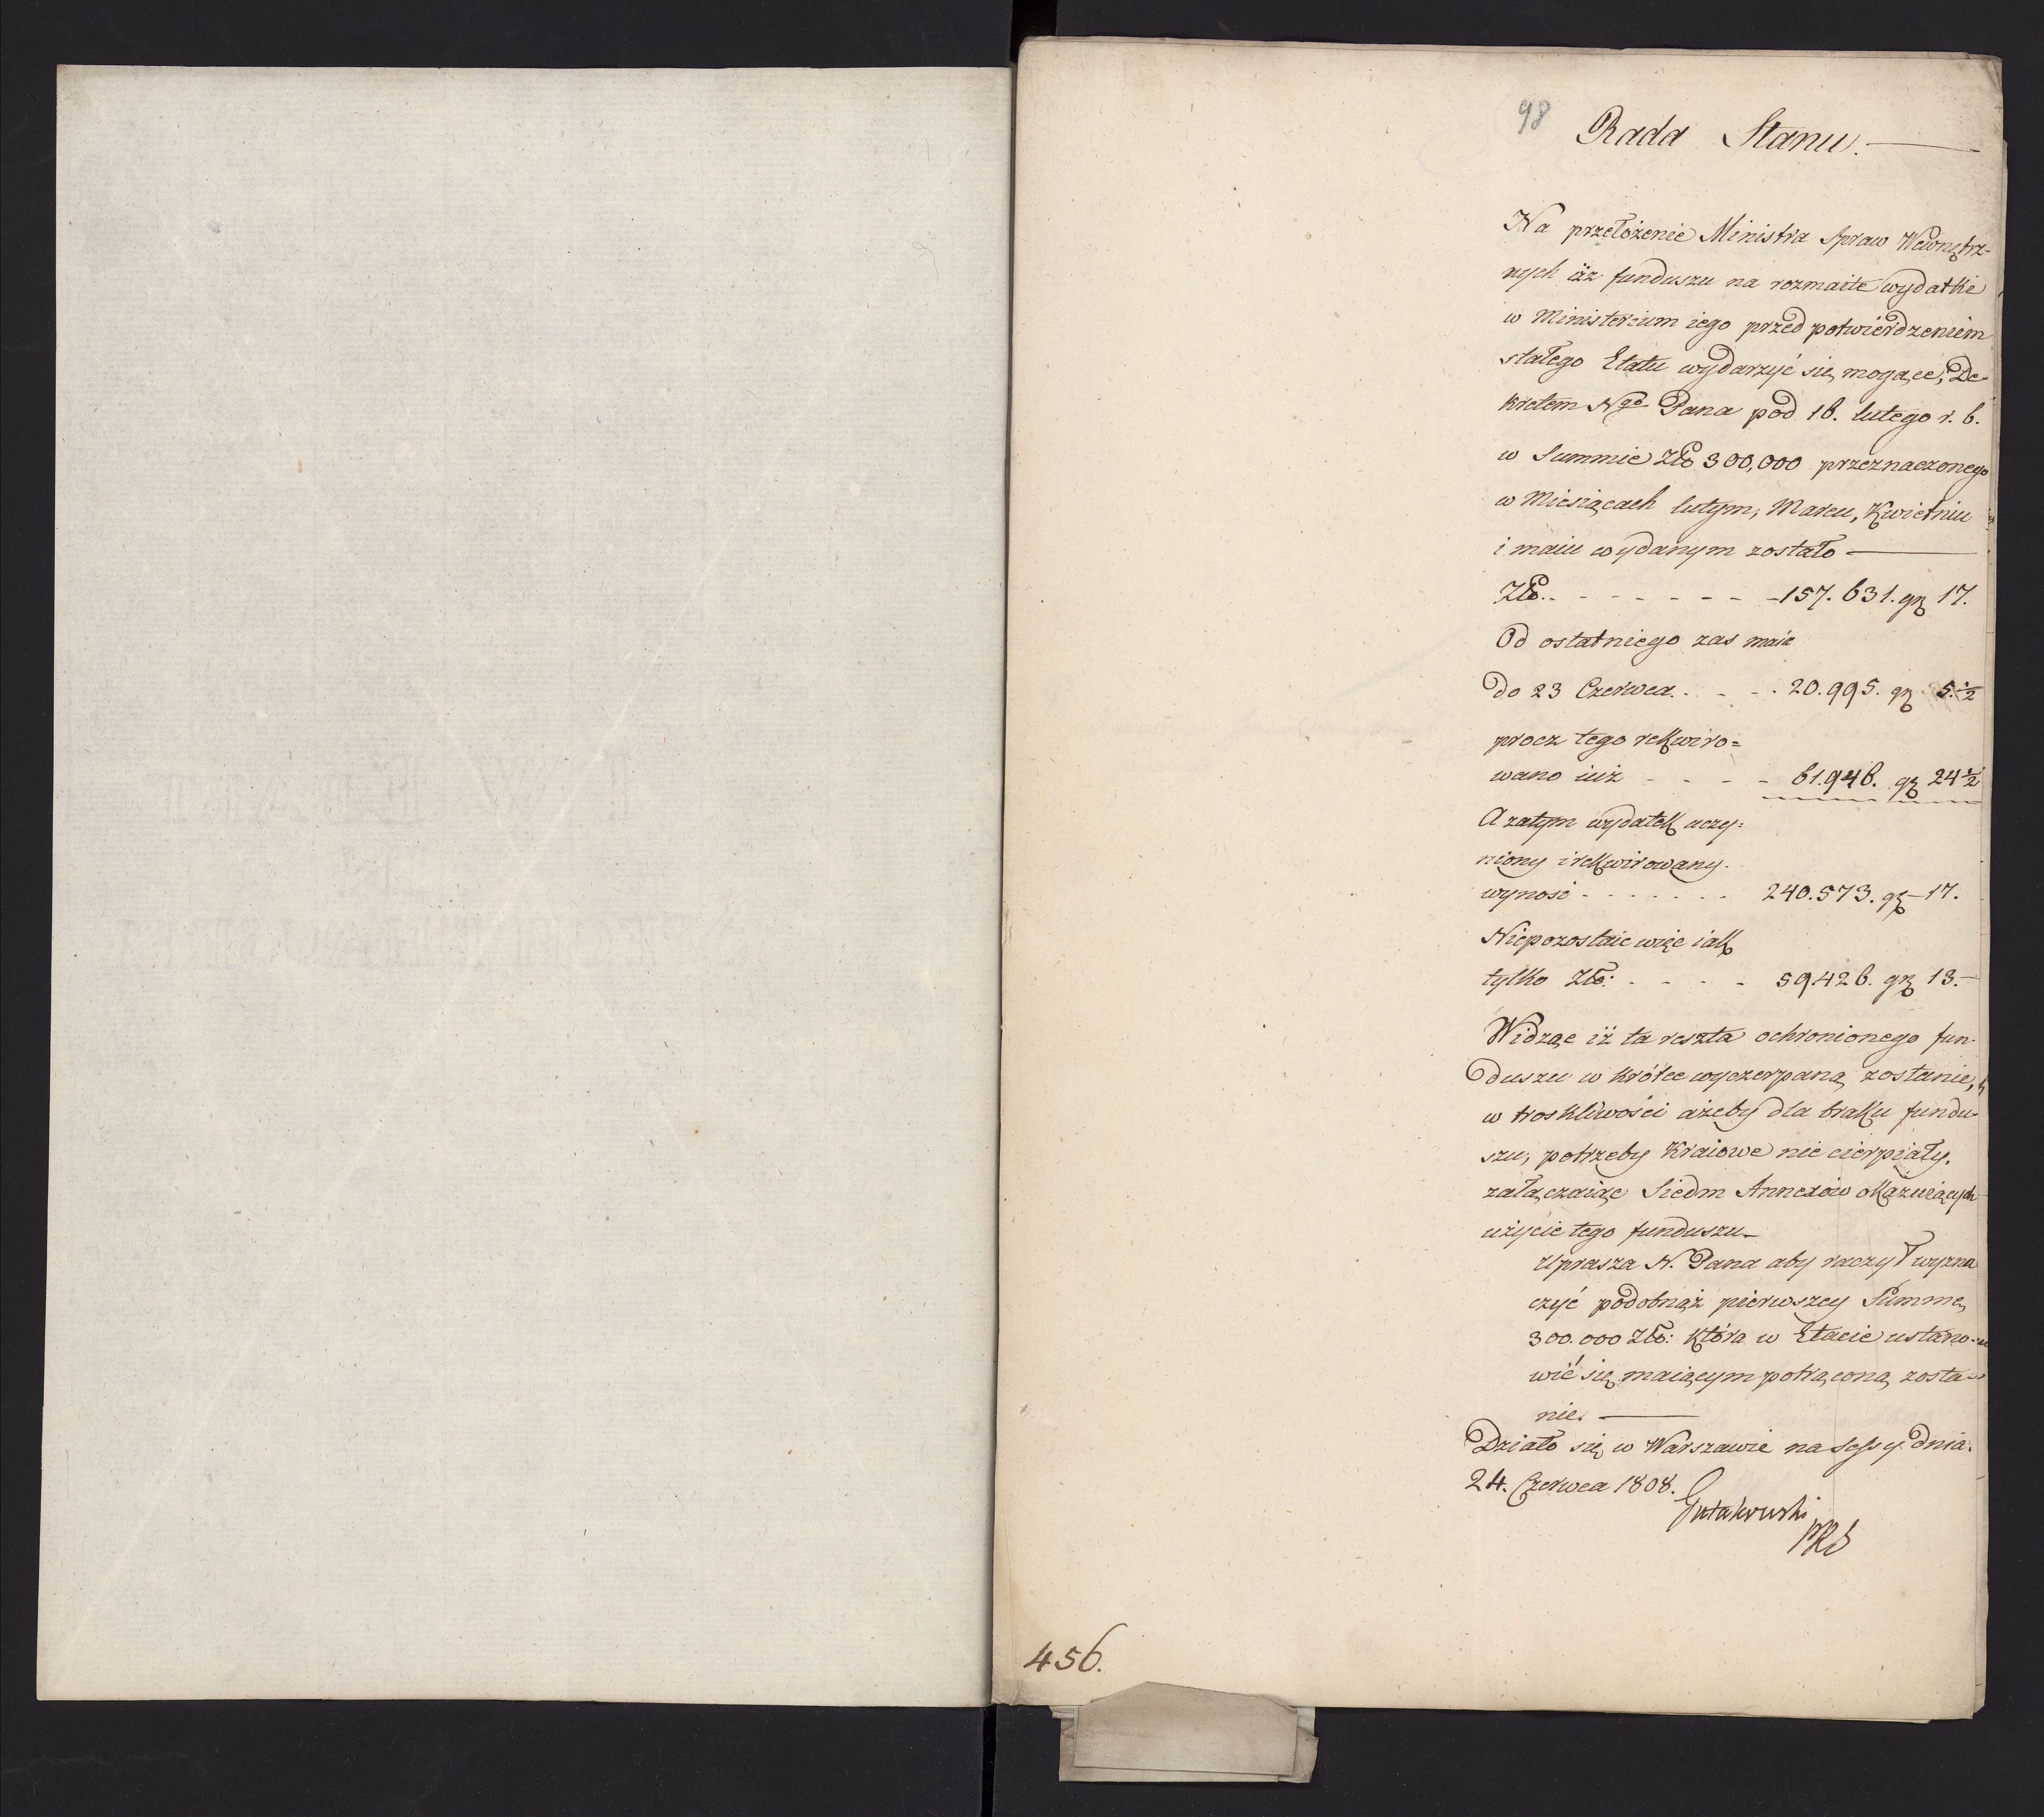 98
Rada Stanu.
Na przełożenie Ministra Spraw Wewnętrz-
nych iż z funduszu na rozmaite wydatki
w Ministerium iego przed potwierdzeniem
stałego Etatu wydarzyć się mogące, De-
kretem Ngo Pana pod 16. lutego r. b.
w Summie Złp 300,000 przeznaczonego
w Miesiącach lutym, Marcu, Kwietniu
i maiu wydanym zostało
Złp. - - - - - - - 157.631. gr 17.
Od ostatniego zas maia
do 23 Czerwca. - - - 20.995. gr 5.½
procz tego rekwiro=
wano iuż - - - - 61.946. gr 24½
A zatym wydatek uczy=
niony i rekwirowany.
wynosi - - - - - - 240.573. gr 17.
Niepozostaie więc iak
tylko Złp: - - - - 59.426. gr 13.-
Widząc iż ta reszta ochronionego fun-
duszu w krótce wyczerpaną zostanie,
w troskliwości ażeby dla braku fundu-
szu, potrzeby Kraiowe nie cierpiały.
załączaiąc Siedm Annexów okazuiących
użycie tego funduszu_
Uprasza N. Pana aby raczył wyzna
czyć podobnąż pierwszey Summę
300.000 Złp: która w Etacie ustano-
wić się maiącym potrąconą zosta-
nie.
Działo się w Warszawie na Sessyi dnia.
24. Czerwca 1808.
Gutakowski
PRS
456.